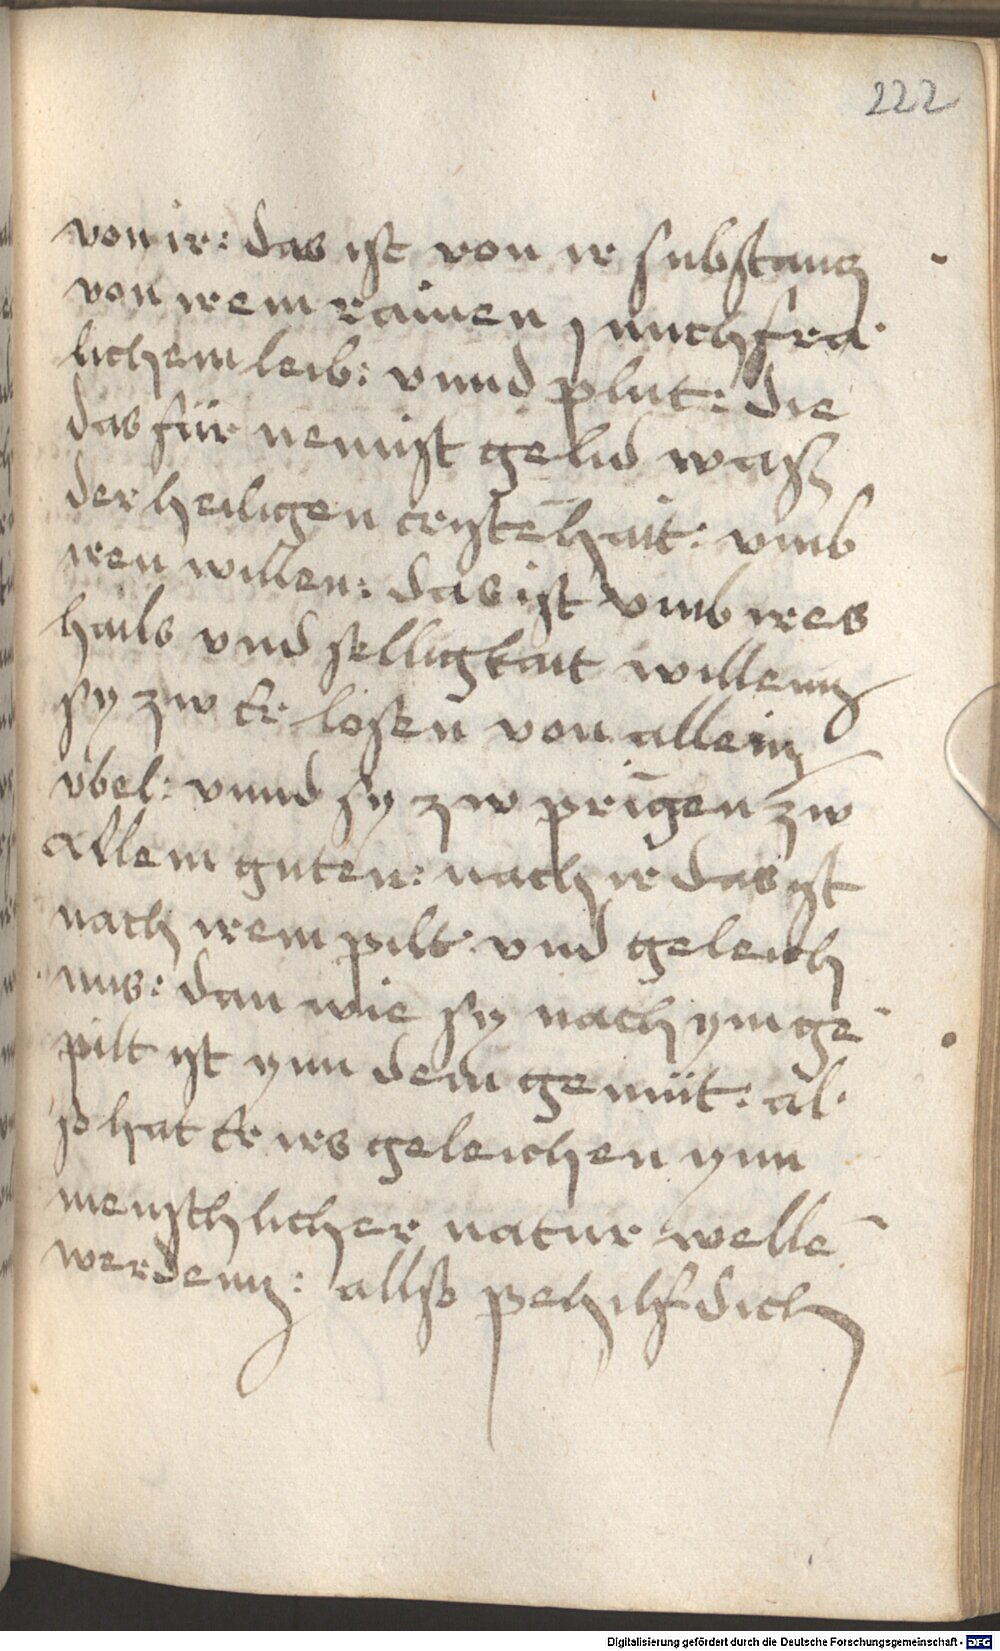 222
von ir: das ist von ir substantz
von irem rainen junckfra
lichem leib: vnnd plut: die
das für nemist gelid was
der heiligen cristēhait: vmb
iren willen: das ist vmb ires
hails vnd selligkait willenn
sy zw er losen von allem
vbel: vnnd sy zw prīgen zw
allem guten: nach ir das ist
nach irem pilt vnd geleich
nus: dan wie sy nach ym ge
pilt ist ynn dem gemüt: al
so hat er irs geleichen ynn
menschlicher natur welle
werdenn: allso pehilf dich
Digitalisierung gefördert durch die Deutsche Forschungsgemeinschaft - DFG